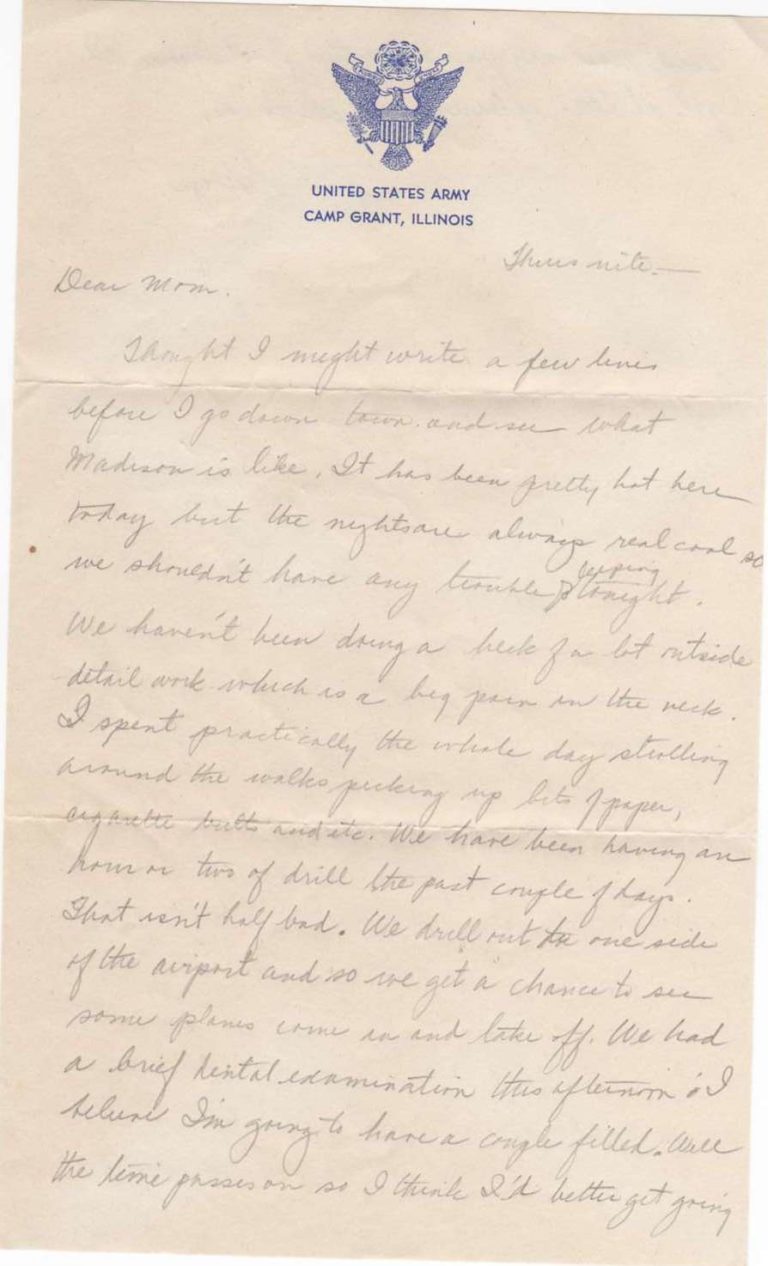 UNITED STATES ARMY
CAMP GRANT, ILLINOIS
Thurs nite —
Dear Mom.
Thought I might write a few lines
before I go down town and see what
Madison is like. It has been pretty hot here
today but the nights are always real cool so
we shouldn't have any trouble sleeping tonight.
We haven't been doing a heck of a lot outside
detail work which is a big pain in the neck.
I spent practically the whole day strolling
around the walks picking up bits of paper,
cigarette butts and etc. We have been having an
hour or two of drill the past couple of days.
That isn't half bad. We drill out to one side
of the airport and so we get a chance to see
some planes come in and take off. We had
a brief dental examination this afternoon & I
believe I'm going to have a couple filled. Well
the time passes on so I think I'd better get going